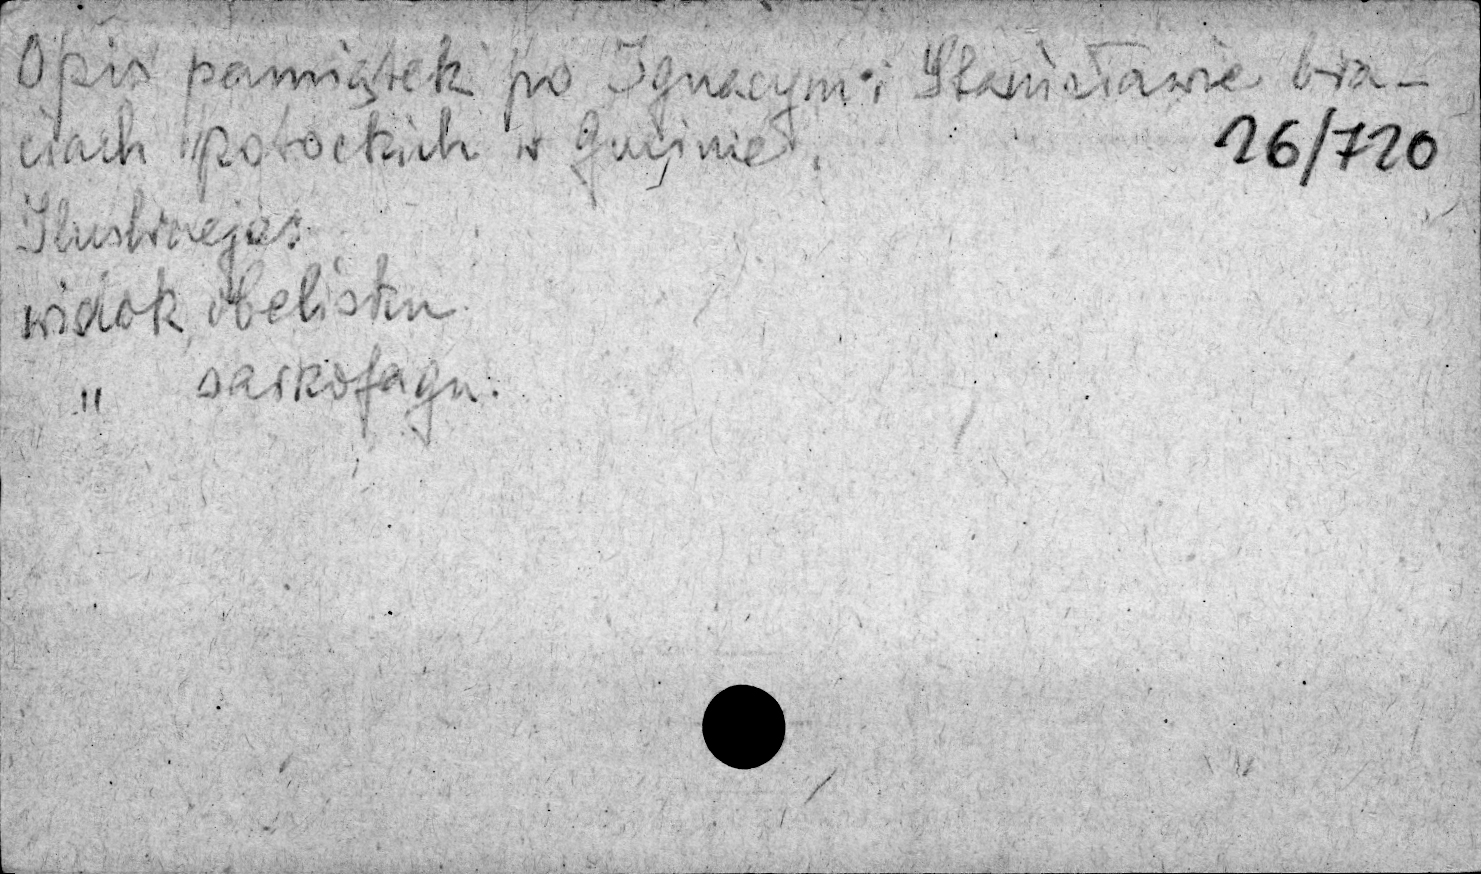 Opis pamiątek po Ignacym i Stanisławie bra-
ciach Potockich w Gucinie.
26/720
Ilustracja:
widok obelisku
" sarkofagu.